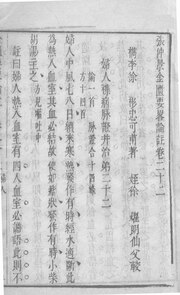 張仲景金匱要畧論註卷二十二
檇李徐彬忠可甫著
婦人雜病脉證并治第二十二
論一首 脉證合十四條
方十四首
婦人中風七八日續來寒熱發作有時經水適斷此
為熱入血室其血必結故使如瘧狀發作有時小柴
胡湯主之方見嘔吐中
註曰婦人熱入血室有四人血室必譫語此則不